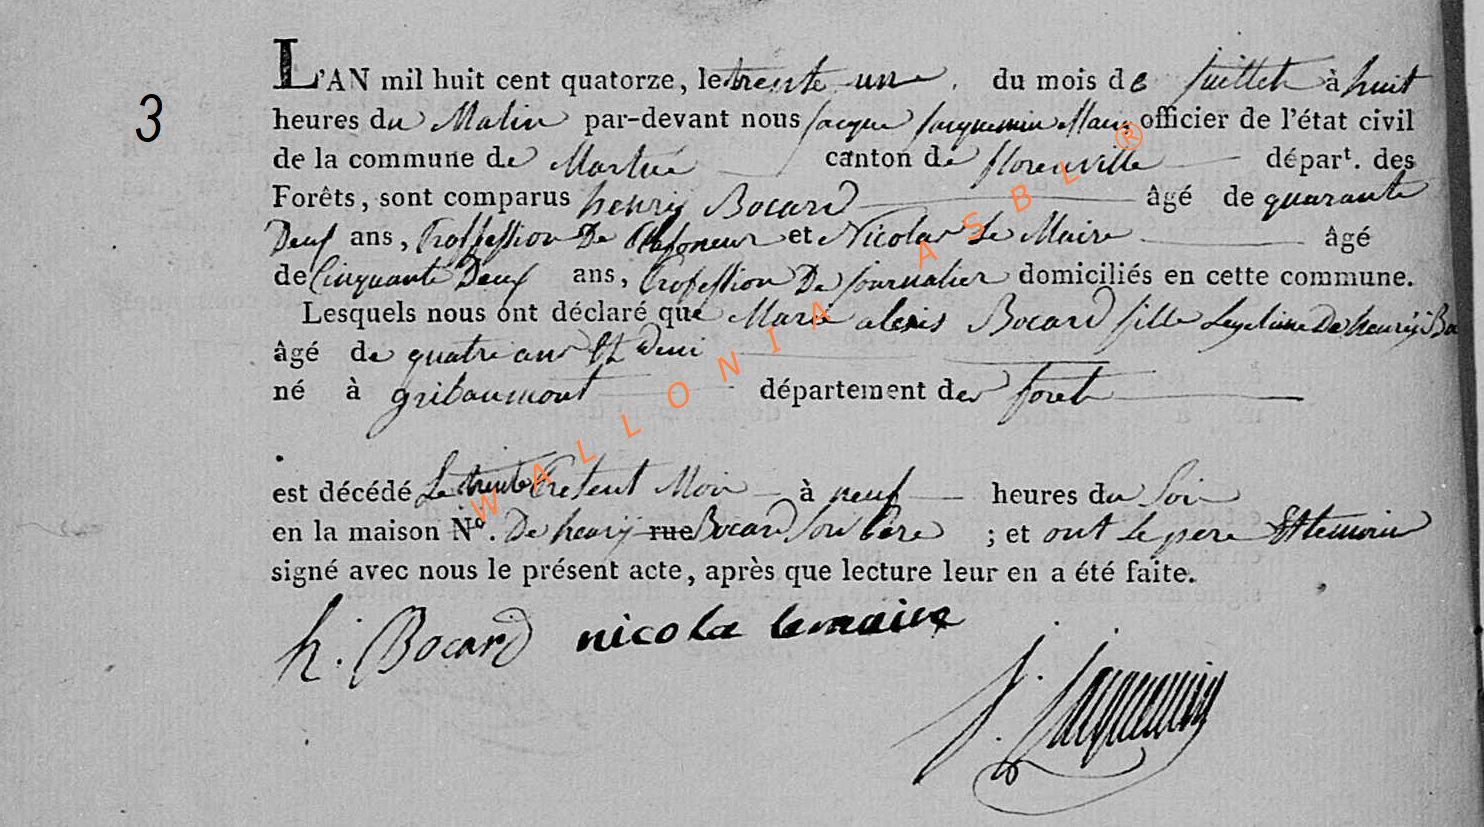 3
L'AN mil huit cent quatorze, le trente un du mois de juillet à huit
heures du Matin par-devant nous jacque jacquemin Maire officier de l'état civil
de la commune de Martué canton de florenville départ. des
Forêts, sont comparus henrÿ Bocard âgé de quarante
Deux ans, Proffession De et Nicolas Le Maire âgé
de Cinquante Deux ans, Profession De journalier domiciliés en cette commune.
Lesquels nous ont déclaré que Marie alexis Bocard fille Legetime De henrÿ Bo
âgé de quatre ans Et Demi
né à gribaumont département des foret
est décédé Le trente Presents Mois à neuf heures du Soir
en la maison N.º De henrÿ rue Bocard Son Pere ; et ont Le pere Et temoin
signé avec nous le présent acte, après que lecture leur en a été faite.
h. Bocard nicola lemaire
J. Jacquemin
WALLONIA ASBL ®